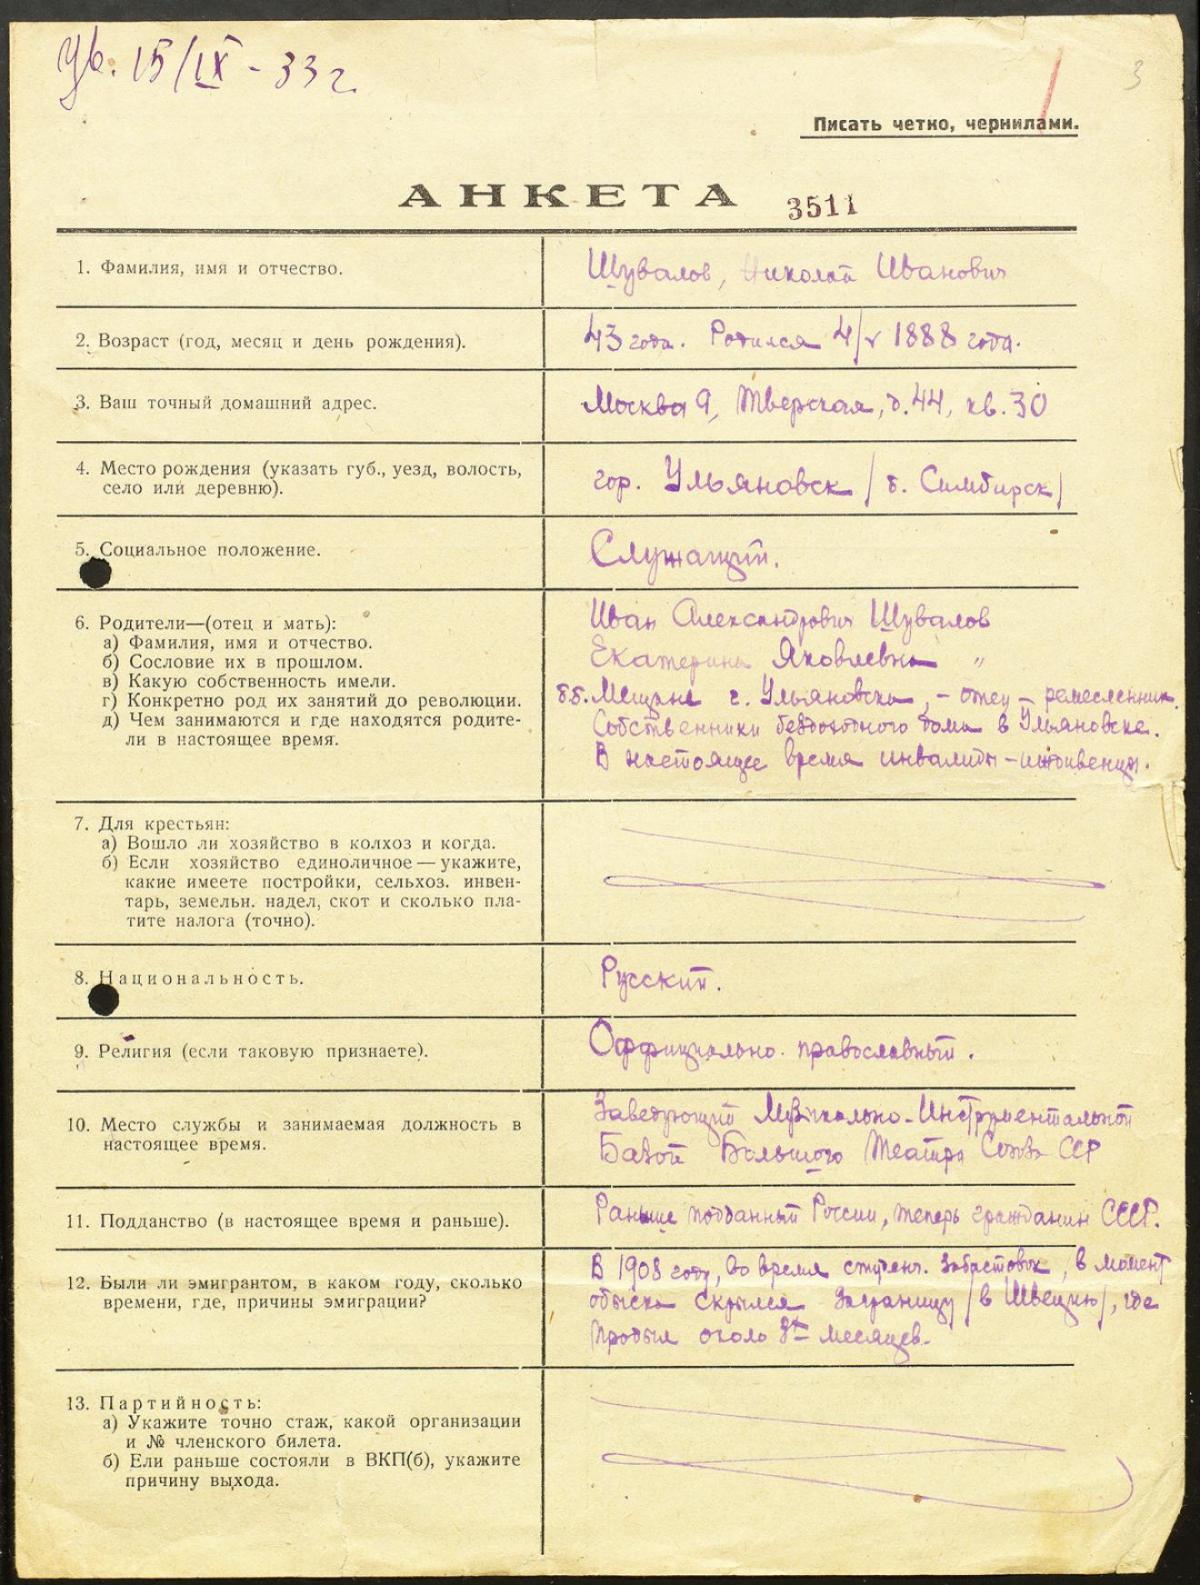 Ув. 15/IX - 33 г.
3
Писать четко, чернилами.
АНКЕТА 3511
1. Фамилия, имя и отчество.
Шувалов, Николай Иванович
2. Возраст (год, месяц и день рождения).
43 года. Родился 4/V 1888 года.
3. Ваш точный домашний адрес.
Москва 9, Тверская, д. 44, кв. 30
4. Место рождения (указать губ., уезд, волость,
село или деревню).
гор. Ульяновск /б. Симбирск/
5. Социальное положение.
Служащий.
6. Родители—(отец и мать):
а) Фамилия, имя и отчество.
б) Сословие их в прошлом.
в) Какую собственность имели.
г) Конкретно род их занятий до революции.
д) Чем занимаются и где находятся родите-
ли в настоящее время.
Иван Александрович Шувалов
Екатерина Яковлевна "
б.б. Мещане г. Ульяновска, - отец - ремесленник.
Собственники бездоходного дома в Ульяновске.
В настоящее время инвалиды-иждивенцы.
7. Для крестьян:
а) Вошло ли хозяйство в колхоз и когда.
б) Если хозяйство единоличное — укажите,
какие имеете постройки, сельхоз. инвен-
тарь, земельн. надел, скот и сколько пла-
тите налога (точно).
8. Национальность.
Русский.
9. Религия (если таковую признаете).
Оффициально православный.
10. Место службы и занимаемая должность в
настоящее время.
Заведующий Музыкально-Инструментальной
Базой Большого Театра Союза ССР
11. Подданство (в настоящее время и раньше).
Раньше подданный России, теперь гражданин СССР.
12. Были ли эмигрантом, в каком году, сколько
времени, где, причины эмиграции?
В 1908 году, во время студенч. забастовок, в момент
обыска скрылся заграницу /в Швецию/, где
пробыл около 8ми месяцев.
13. Партийность:
а) Укажите точно стаж, какой организации
и № членского билета.
б) Ели раньше состояли в ВКП(б), укажите
причину выхода.